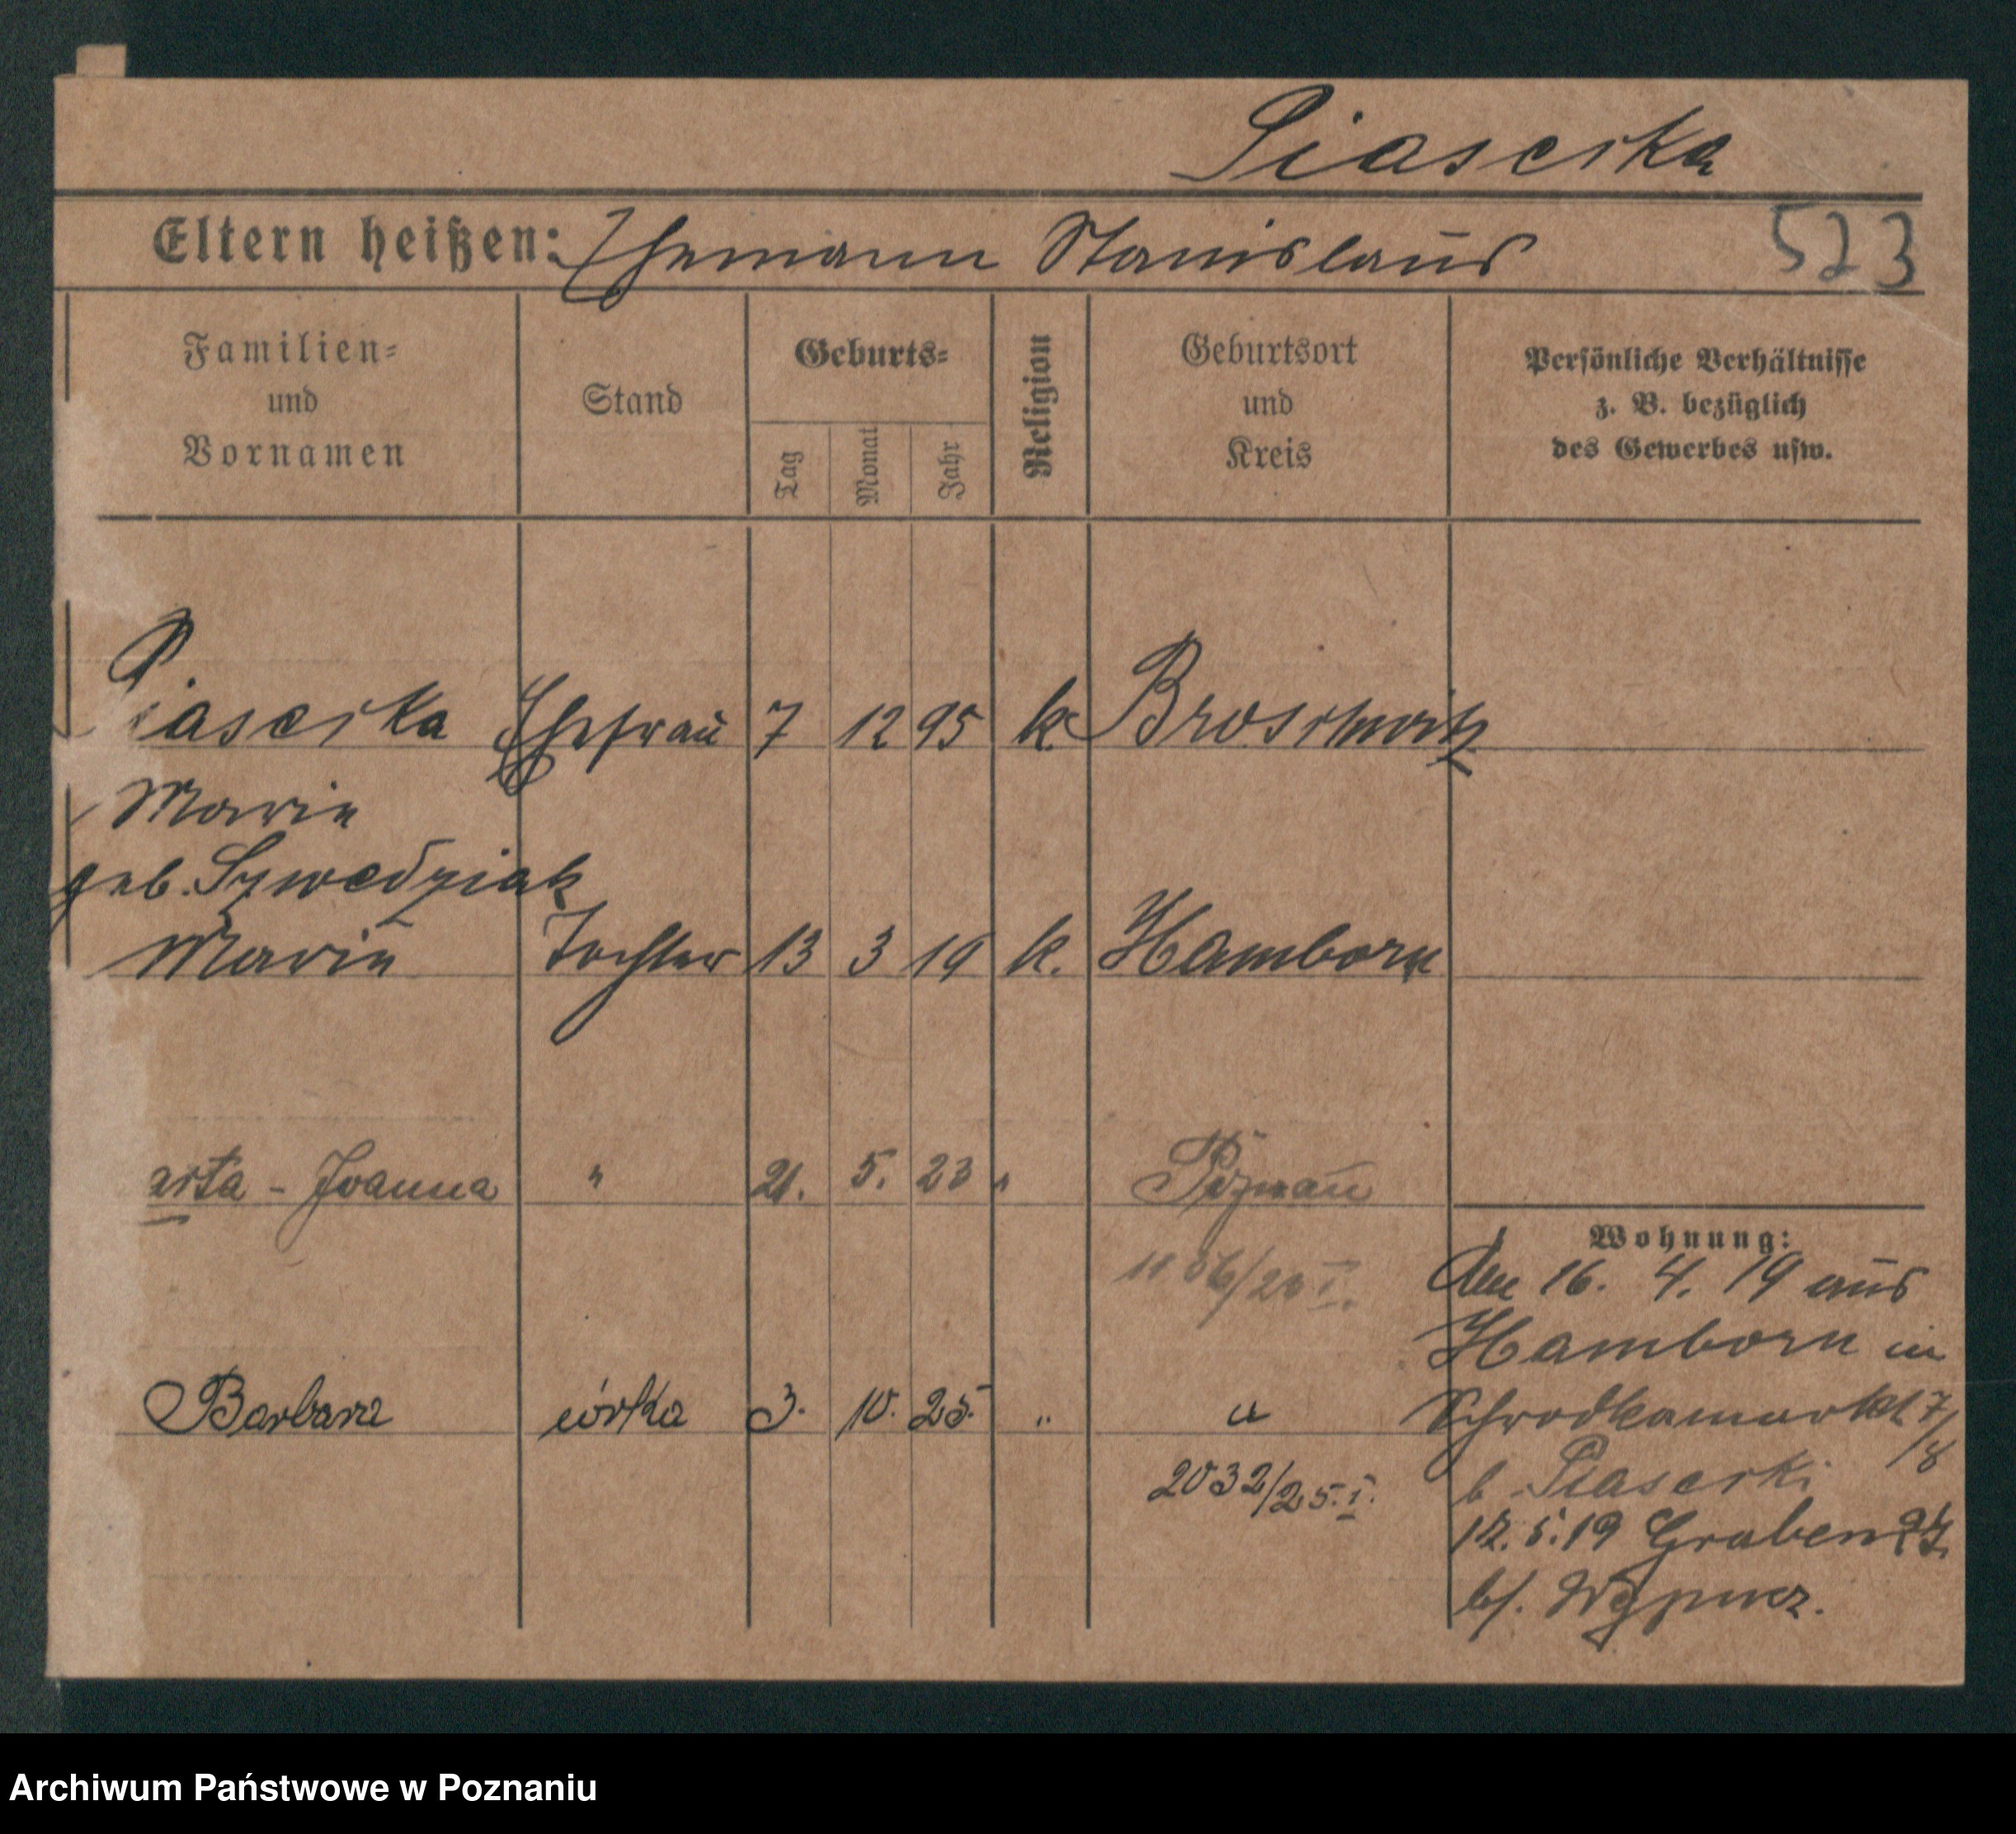 Piaserka
Eltern heißen: Ehemann Stanislaus 523
Familien=
und
Vornamen
Stand
Geburts=
Tag
Monat
Jahr
Religion
Geburtsort
und
Kreis
Persönliche Verhältnisse
z. B. bezüglich
des Gewerbes usw.
Piaserka Ehefrau 7 12 95 k.
Marie
geb. Szwedziak
Marie Tochter 13 3 19 k. Hamborn
arta - Joanna " 21. 5. 23 " Poznań
Barbara córka 3. 10. 25. "
2032/25. I.
Wohnung:
den 16. 4. 19 aus
Hamborn in
Schrodkamarkt 7/8
b. Piaserki
12. 5. 19 Graben
bei
Archiwum Państwowe w Poznaniu